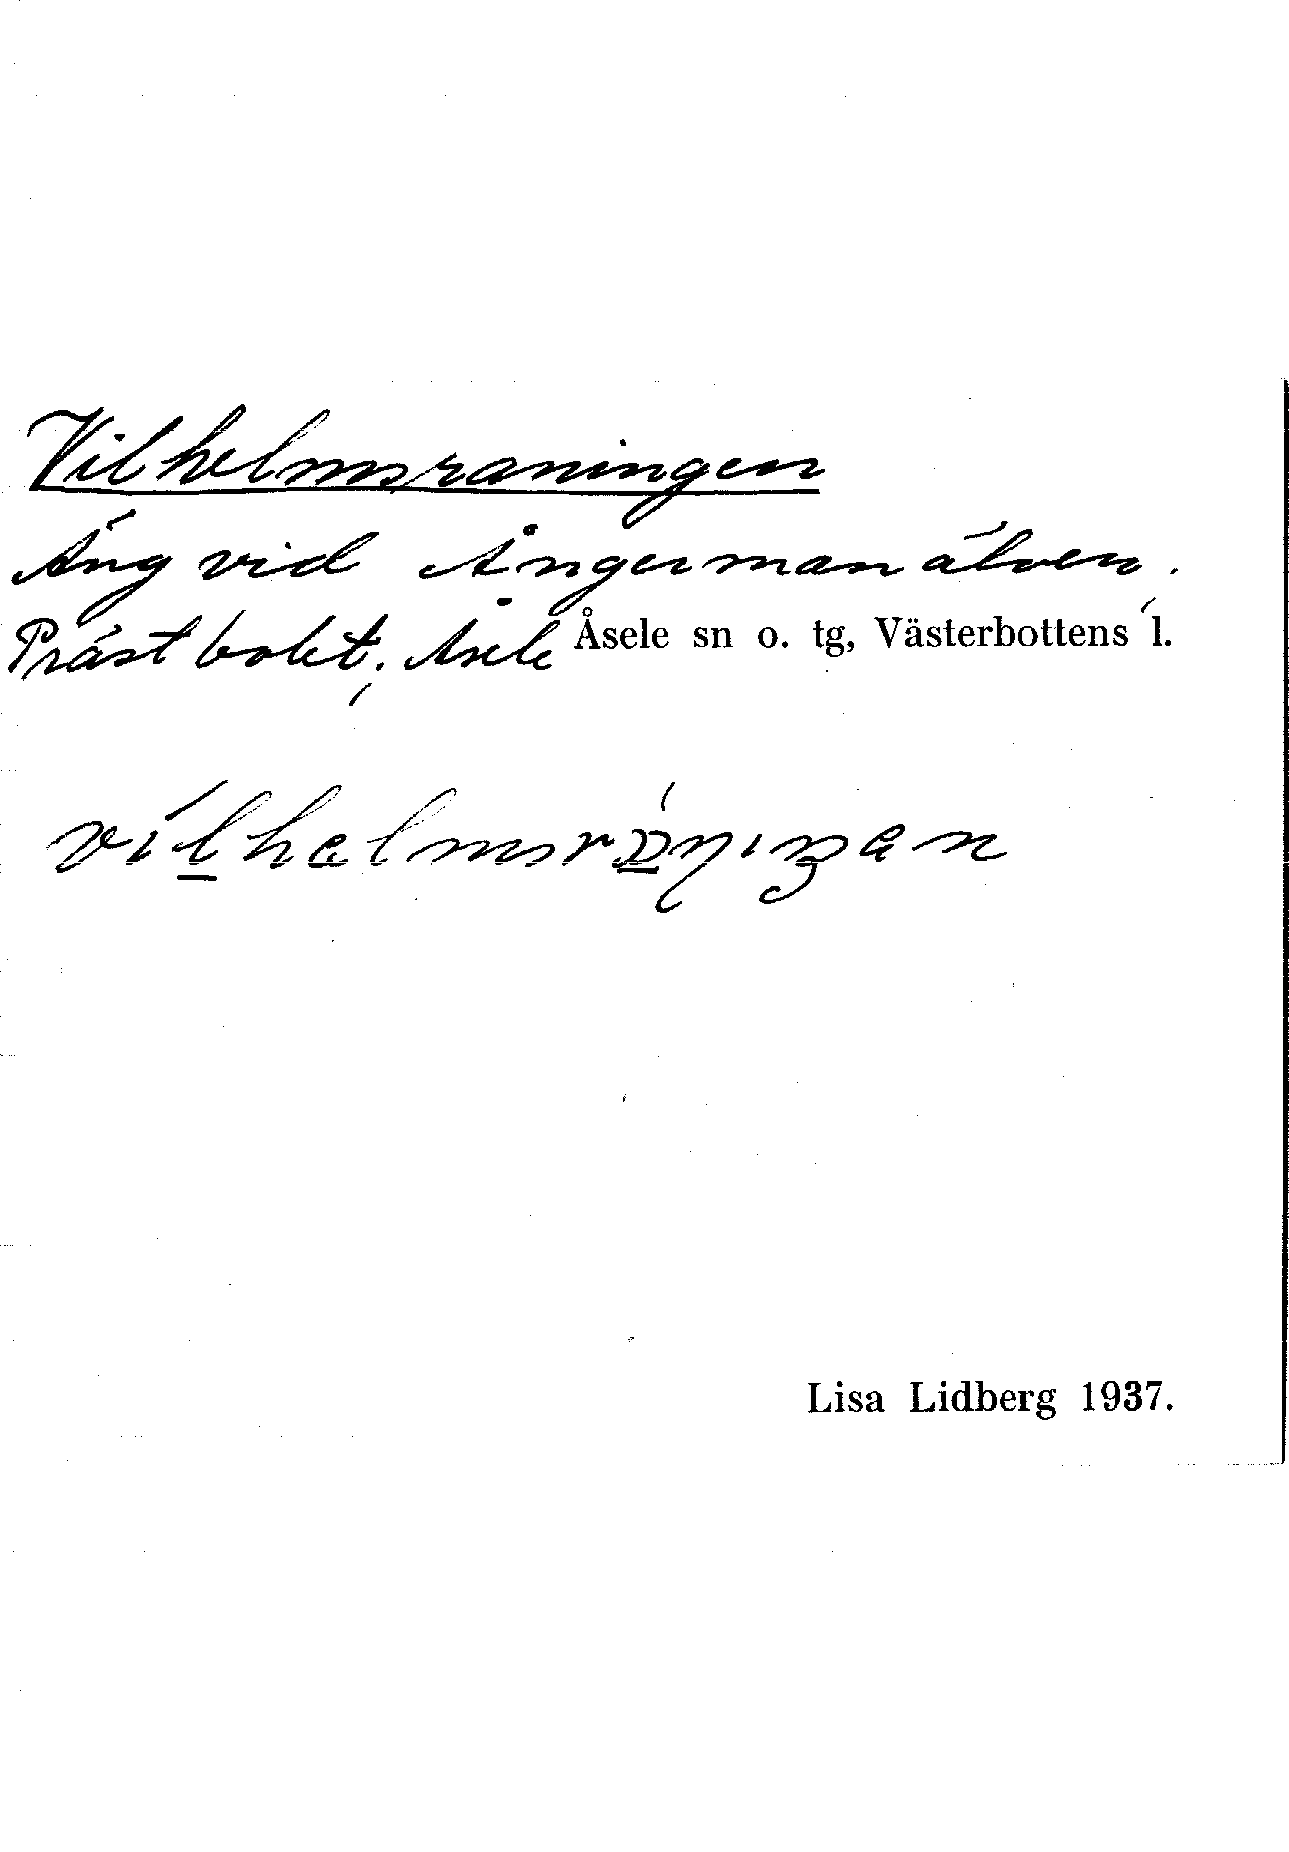 Vilhelmsraningen
Äng vid Ångermanälven,
Prästbolet, Åsele Åsele sn o. tg, Västerbottens l.
Lisa Lidberg 1937.